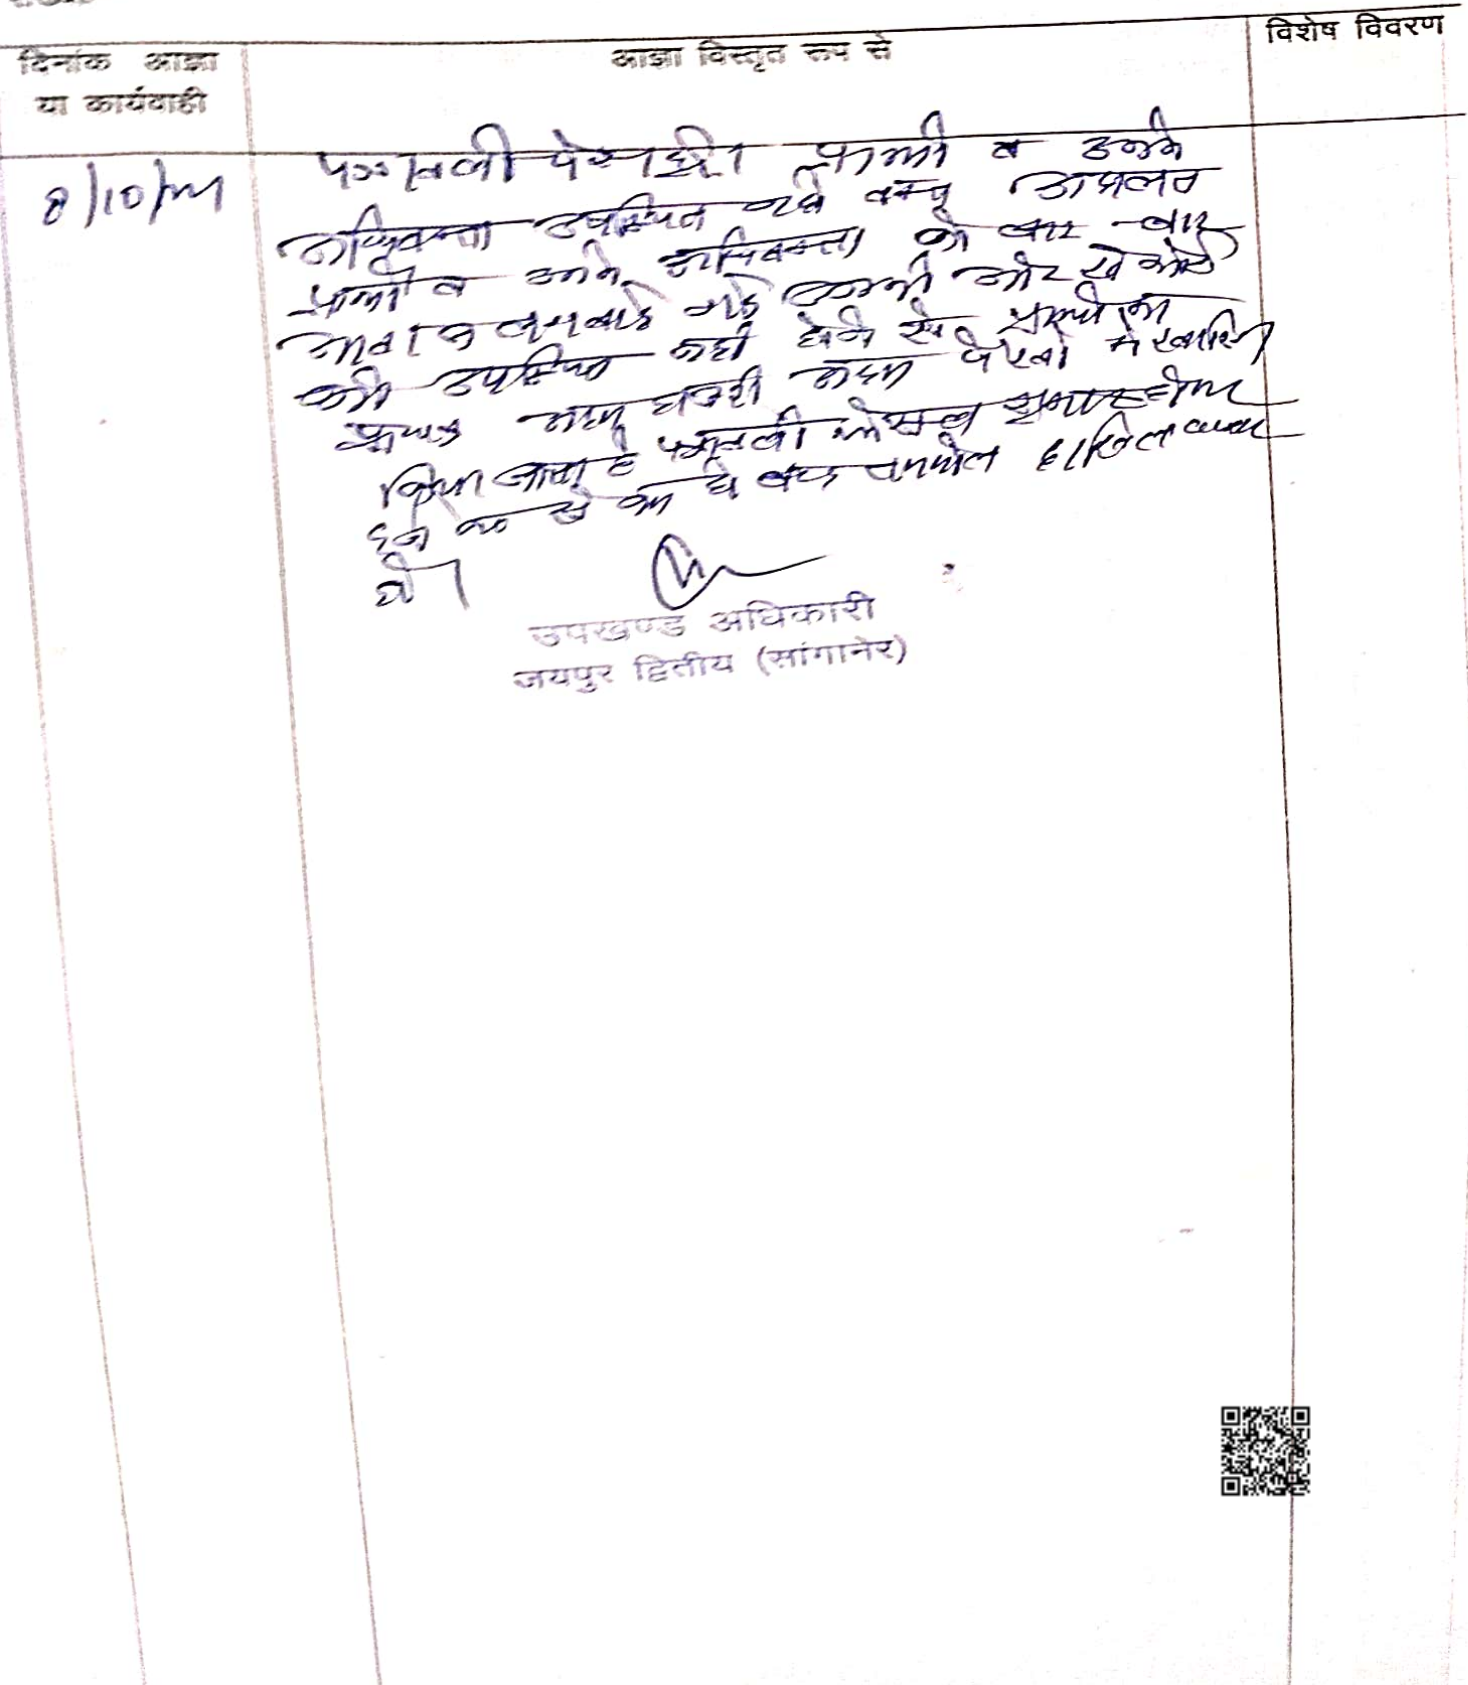 दिनांक आज्ञा
या कार्यवाही
आज्ञा विस्तृत रूप से
विशेष विवरण
8/10/
पत्रावली पेश हुई। प्रार्थी व उनके
अधिवक्ता उपस्थित नहीं
प्रार्थी व उनके अधिवक्ता को बार-बार
आवाज लगवाई गई उनकी ओर से कोई
भी उपस्थित नहीं होने से प्रार्थी का
अदम हाजरी अदम पैरवी में खारिज
किया जाता है पत्रावली फैसल शुमार होकर
दर्ज न० से कम हो बाद तकमील दाखिल दफ्तर
हो।
उपखण्ड अधिकारी
जयपुर द्वितीय (सांगानेर)